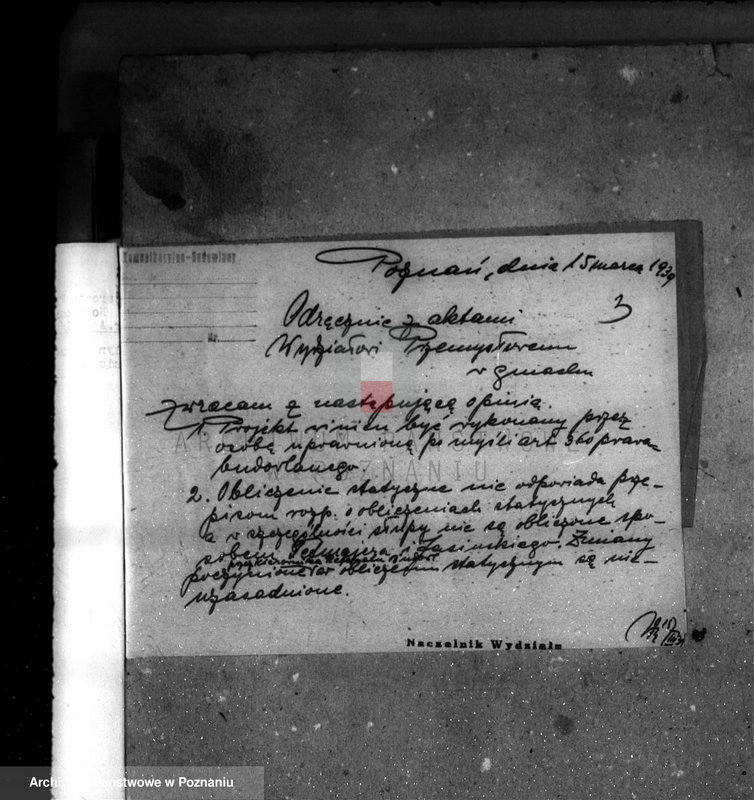 Komunikacyjno-Budowlany
Nr.
Poznań, dnia 15 marca 1939
3
Odręcznie z aktami
Wydziałowi Przemysłowemu
w gmachu
zwracam z następującą opinią.
1. Projekt winien być wykonany przez
osobę uprawnioną po myśli art. 360 prawa
budowlanego.
2. Obliczenie statyczne nie odpowiada prze-
pisom rozp. o obliczeniach statycznych
a w szczególności słupy nie są obliczone spo-
sobem i Jasińskiego. Zmiany
poczynione w obliczeniu statycznym są nie-
uzasadnione.
Naczelnik Wydziału
ARCHIWUM PAŃSTWOWE
W POZNANIU
Archiwum Państwowe w Poznaniu